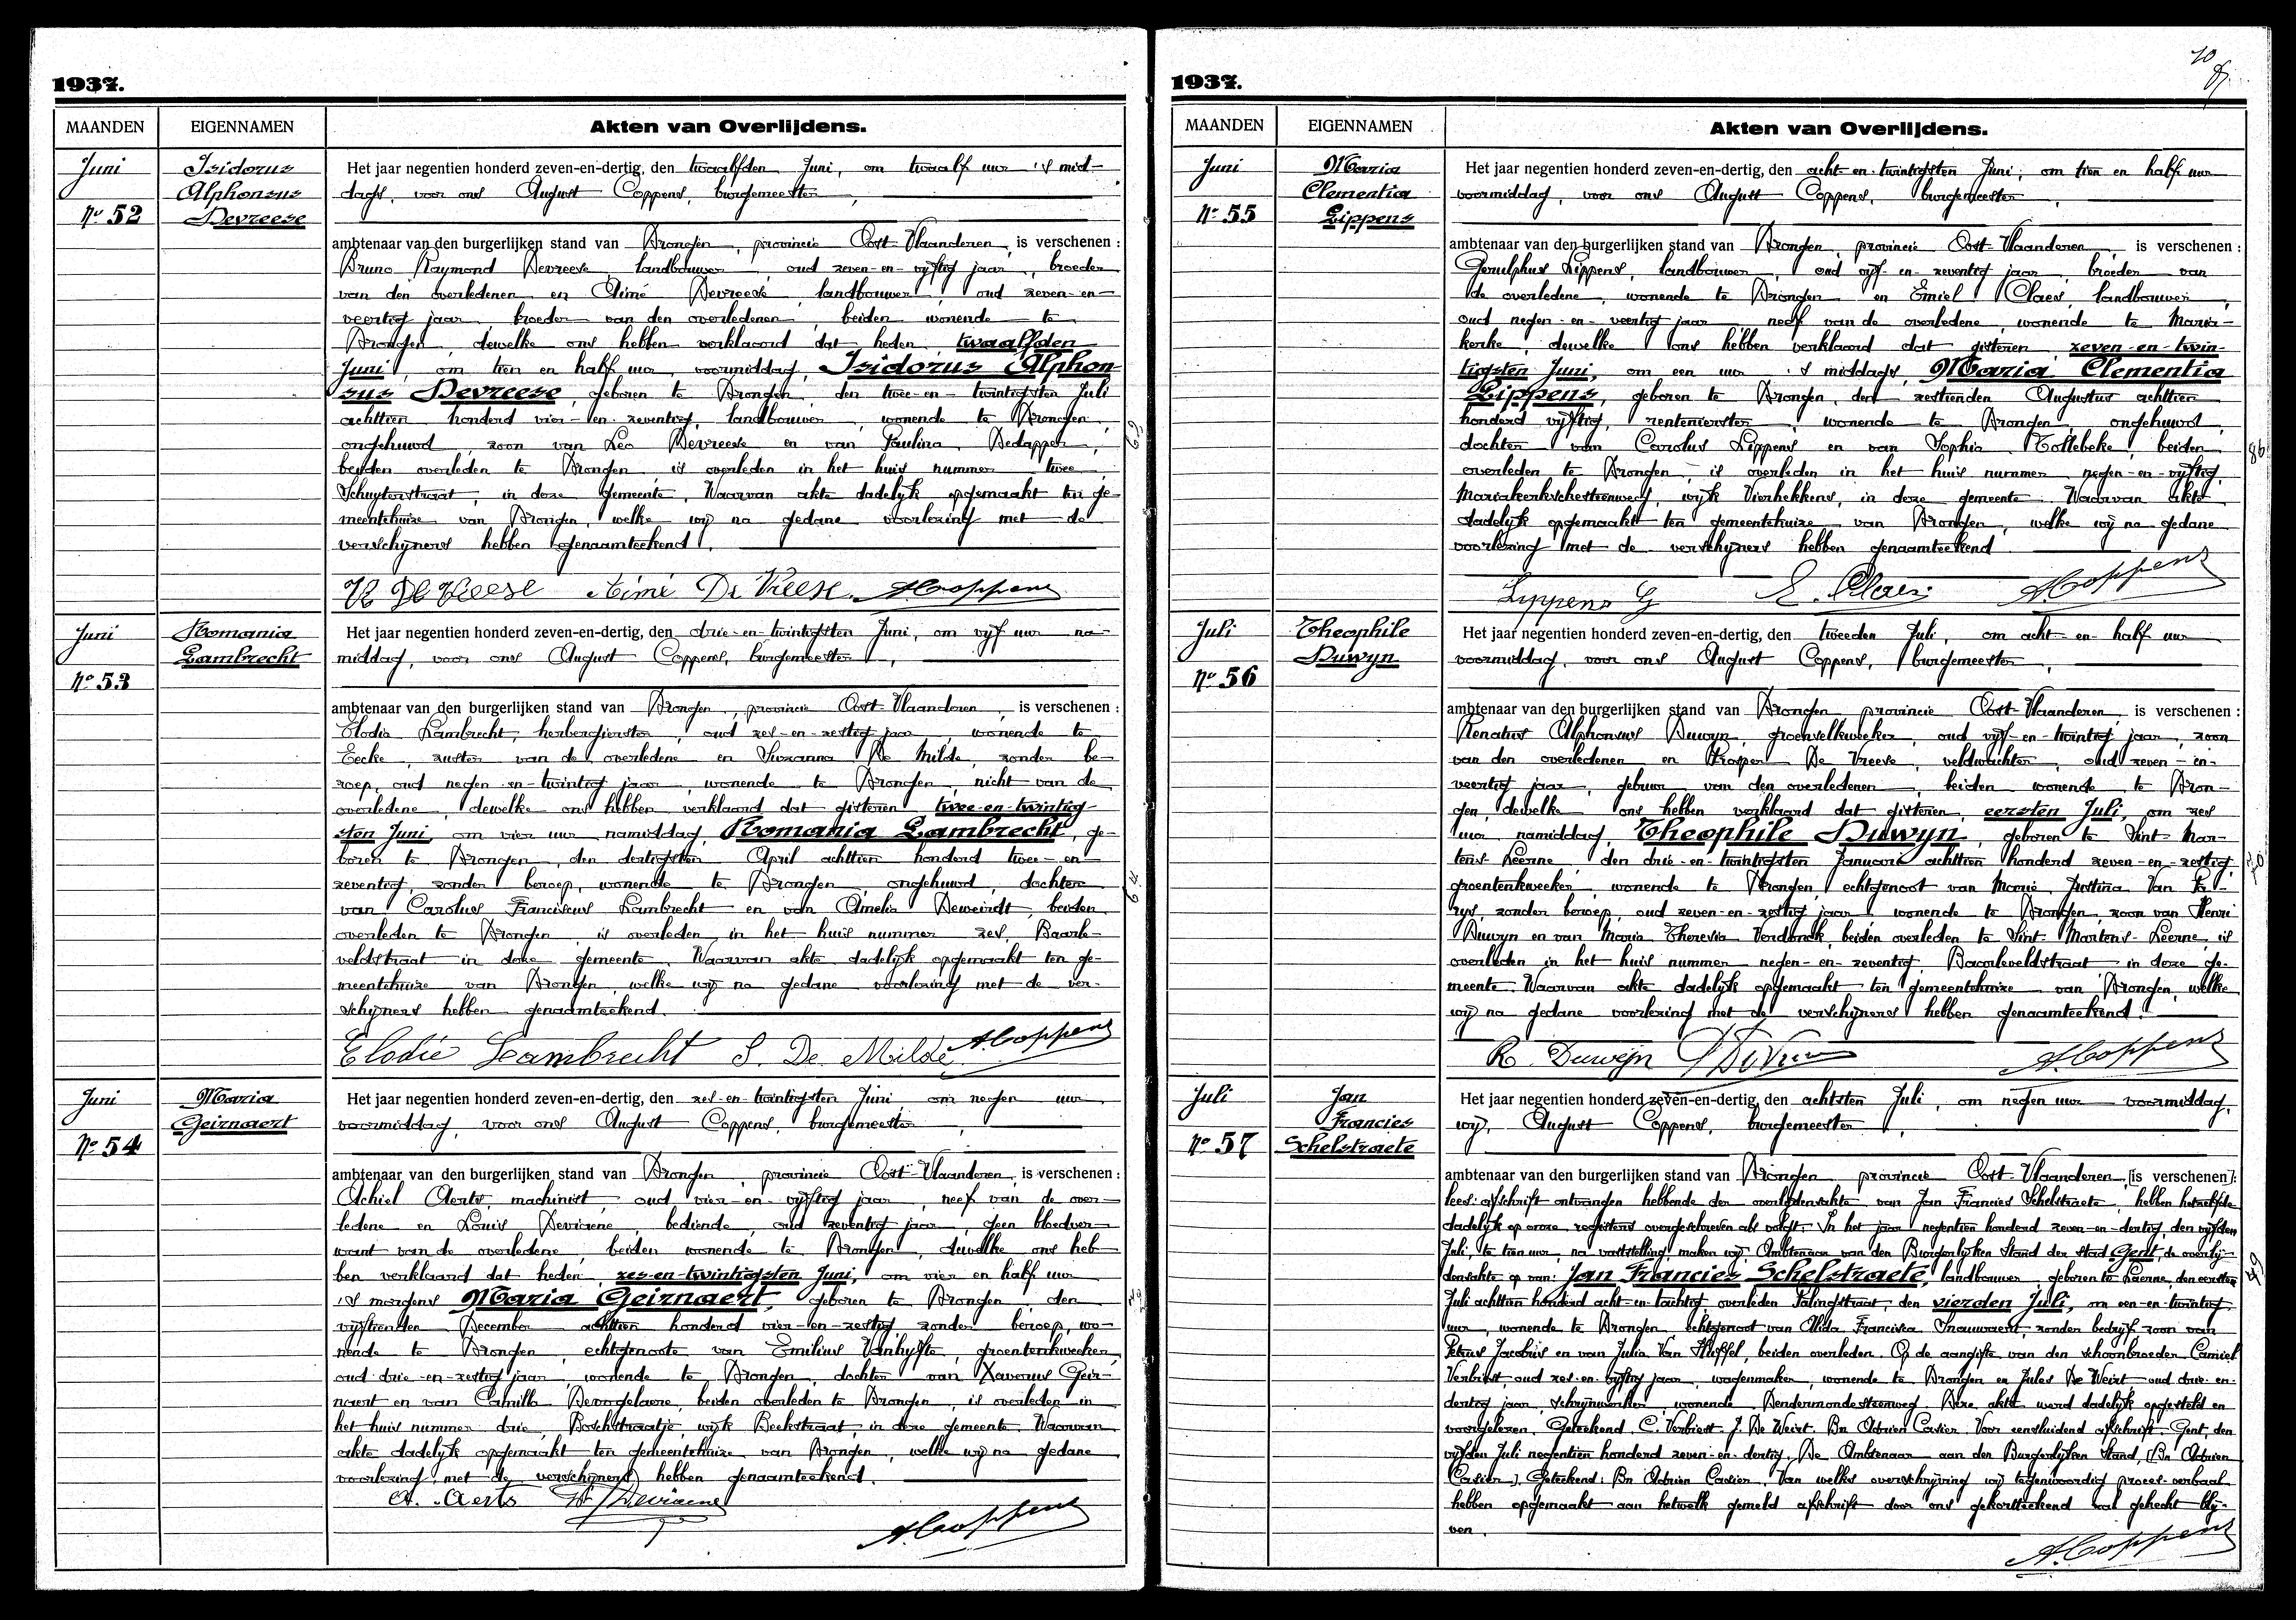 1937.
MAANDEN EIGENNAMEN Akten van Overlijdens.
Juni
Nº 52
Isidorus
Alphonsus
Devreese
Het jaar negentien honderd zeven-en-dertig, den twaalfden Juni, om twaalf uur 's mid-
dags, voor ons August Coppens, burgemeester,
ambtenaar van den burgerlijken stand van Drongen, provincie Oost-Vlaanderen, is verschenen :
Bruno Raymond Devreese, landbouwer, oud zeven-en-vijftig jaar, broeder
van den overledenen en Aimé Devreese, landbouwer, oud zeven-en-
veertig jaar, broeder van den overledenen, beiden wonende te
Drongen, dewelke ons hebben verklaard dat heden, twaalfden
Juni, om tien en half uur voormiddag, Isidorus Alphon-
sus Devreese, geboren te Drongen, den twee-en-twintigsten Juli
achttien honderd vier-en-zeventig, landbouwer, wonende te Drongen,
ongehuwd, zoon van Leo Devreese en van Paulina Dedapper,
beiden overleden te Drongen is overleden in het huis nummer twee
Schuyterstraat, in deze gemeente. Waarvan akte dadelijk opgemaakt ten ge-
meentehuize van Drongen, welke wij na gedane voorlezing met de
verschijners hebben genaamteekend.
Aimé De Vreese ACoppens
62
Juni
Nº 53
Romania
Lambrecht
Het jaar negentien honderd zeven-en-dertig, den drie-en-twintigsten Juni, om vijf uur na-
middag, voor ons August Coppens, burgemeester,
ambtenaar van den burgerlijken stand van Drongen, provincie Oost-Vlaanderen, is verschenen :
Elodia Lambrecht, herbergierster, oud zes-en-zestig jaar, wonende te
Eecke, zuster van de overledene en Suzanna De Milde, zonder be-
roep, oud negen-en-twintig jaar, wonende te Drongen, nicht van de
overledene, dewelke ons hebben verklaard dat gisteren twee-en-twintig-
sten Juni, om vier uur namiddag, Romania Lambrecht, ge-
boren te Drongen, den dertigsten April achttien honderd twee-en-
zeventig, zonder beroep, wonende te Drongen, ongehuwd, dochter
van Carolus Franciscus Lambrecht en van Amelia Deweirdt, beiden
overleden te Drongen, is overleden in het huis nummer zes, Baarle-
veldstraat in deze gemeente. Waarvan akte dadelijk opgemaakt ten ge-
meentehuize van Drongen, welke wij na gedane voorlezing met de ver-
schijners hebben genaamteekend.
Elodie Lambrecht S. De Milde ACoppens
Juni
Nº 54
Maria
Geirnaert
Het jaar negentien honderd zeven-en-dertig, den zes-en-twintigsten Juni, om negen uur
voormiddag, voor ons August Coppens, burgemeester,
ambtenaar van den burgerlijken stand van Drongen, provincie Oost-Vlaanderen, is verschenen :
Achiel Aerts, machinist, oud vier-en-vijftig jaar, neef van de over-
ledene en Louis Deviaene, bediende, oud zeventig jaar, geen bloedver-
want van de overledene, beiden wonende te Drongen, dewelke ons heb-
ben verklaard dat heden, zes-en-twintigsten Juni, om vier en half uur
's morgens Maria Geirnaert, geboren te Drongen, den
vijftienden December achttien honderd vier-en-zestig, zonder beroep, wo-
nende te Drongen, echtgenoote van Emilius Vanhyfte, groentenkweeker,
oud drie-en-zestig jaar, wonende te Drongen, dochter van Xaverius Geir-
naert en van Camilla Devogelaere, beiden overleden te Drongen, is overleden in
het huis nummer drie, Boschstraatje, wijk Beekstraat, in deze gemeente. Waarvan
akte dadelijk opgemaakt ten gemeentehuize van Drongen, welke wij na gedane
voorlezing met de verschijners hebben genaamteekend.
A. Aerts Deviaene
ACoppens
1937.
MAANDEN EIGENNAMEN Akten van Overlijdens.
Juni
Nº 55
Maria
Clementia
Lippens
Het jaar negentien honderd zeven-en-dertig, den acht-en-twintigsten Juni, om tien en half uur
voormiddag, voor ons August Coppens, burgemeester,
ambtenaar van den burgerlijken stand van Drongen, provincie Oost-Vlaanderen, is verschenen :
Gerulphus Lippens, landbouwer, oud vijf-en-zeventig jaar, broeder van
de overledene, wonende te Drongen en Emiel Claes, landbouwer,
oud negen-en-veertig jaar, neef van de overledene, wonende te Maria-
kerke, dewelke ons hebben verklaard dat gisteren, zeven-en-twin-
tigsten Juni, om een uur 's middags, Maria Clementia
Lippens, geboren te Drongen, den zestienden Augustus achttien
honderd vijftig, rentenierster, wonende te Drongen, ongehuwd,
dochter van Carolus Lippens en van Sophia Tollebeke, beiden
overleden te Drongen, is overleden in het huis nummer negen-en-vijftig,
Mariakerkschesteenweg, wijk Vierhekkens, in deze gemeente. Waarvan akte
dadelijk opgemaakt ten gemeentehuize van Drongen, welke wij na gedane
voorlezing met de verschijners hebben genaamteekend
Lippens G E. Claes ACoppens
86
Juli
Nº 56
Theophile
Duwyn
Het jaar negentien honderd zeven-en-dertig, den tweeden Juli, om acht en half uur
voormiddag, voor ons August Coppens, burgemeester,
ambtenaar van den burgerlijken stand van Drongen provincie Oost-Vlaanderen, is verschenen :
Renatus Alphonsus Duwyn, groenselkweeker, oud vijf-en-twintig jaar, zoon
van den overledenen en Prosper De Vreese, veldwachter, oud zeven-en-
veertig jaar, gebuur van den overledenen, beiden wonende te Dron-
gen, dewelke ons hebben verklaard dat gisteren, eersten Juli, om zes
uur namiddag, Theophile Duwyn, geboren te Sint-Mar-
tens-Leerne, den drie-en-twintigsten Januari achttien honderd zeven-en-zestig,
groentenkweeker, wonende te Drongen, echtgenoot van Marie Justina Van Pa-
rys, zonder beroep, oud zeven-en-zestig jaar, wonende te Drongen, zoon van Henri
Duwyn en van Maria Theresia Verdonck, beiden overleden te Sint-Martens-Leerne, is
overleden in het huis nummer negen-en-zeventig, Baarleveldstraat in deze ge-
meente. Waarvan akte dadelijk opgemaakt ten gemeentehuize van Drongen, welke
wij na gedane voorlezing met de verschijners hebben genaamteekend.
R. Duwijn ACoppens
Juli
Nº 57
Jan
Francies
Schelstraete
Het jaar negentien honderd zeven-en-dertig, den achtsten Juli, om negen uur voormiddag,
wij, August Coppens, burgemeester,
ambtenaar van den burgerlijken stand van Drongen provincie Oost-Vlaanderen, [is verschenen]:
lees: afschrift ontvangen hebbende der overlijdensakte van Jan Francies Schelstraete, hebben hetzelfde
dadelijk op onze registers overgeschreven als volgt: In het jaar negentien honderd zeven-en-dertig, den vijfden
Juli, te tien uur, na vaststelling, maken wij, Ambtenaar van den Burgerlijken Stand der stad Gent, de overlij-
densakte op van: Jan Francies Schelstraete, landbouwer, geboren te Laerne, den eersten
Juli achttien honderd acht-en-tachtig, overleden Palingstraat, den vierden Juli, om een-en-twintig
uur, wonende te Drongen echtgenoot van Alida Francisca Snauwaert, zonder bedrijf, zoon van
Petrus Jacobus en van Julia Van Heffel, beiden overleden. Op de aangifte van den schoonbroeder Camiel
Verbiest, oud zes-en-vijftig jaar, wagenmaker, wonende te Drongen en Jules De Weirt, oud drie-en-
dertig jaar, schrijnwerker, wonende Dendermondesteenweg. Deze akte werd dadelijk opgesteld en
voorgelezen. Geteekend: C. Verbiest, J. De Weirt. Bn Adrien Casier. Voor eensluidend afschrift. Gent, den
vijfden Juli negentien honderd zeven-en-dertig. De Ambtenaar aan den Burgerlijken Stand, (Bn Adrien
Casier). Geteekend: Bn Adrien Casier. Van welks overschrijving wij tegenwoordig proces-verbaal
hebben opgemaakt aan hetwelk gemeld afschrift door ons gekorteekend zal gehecht blij-
ven.
ACoppens
49